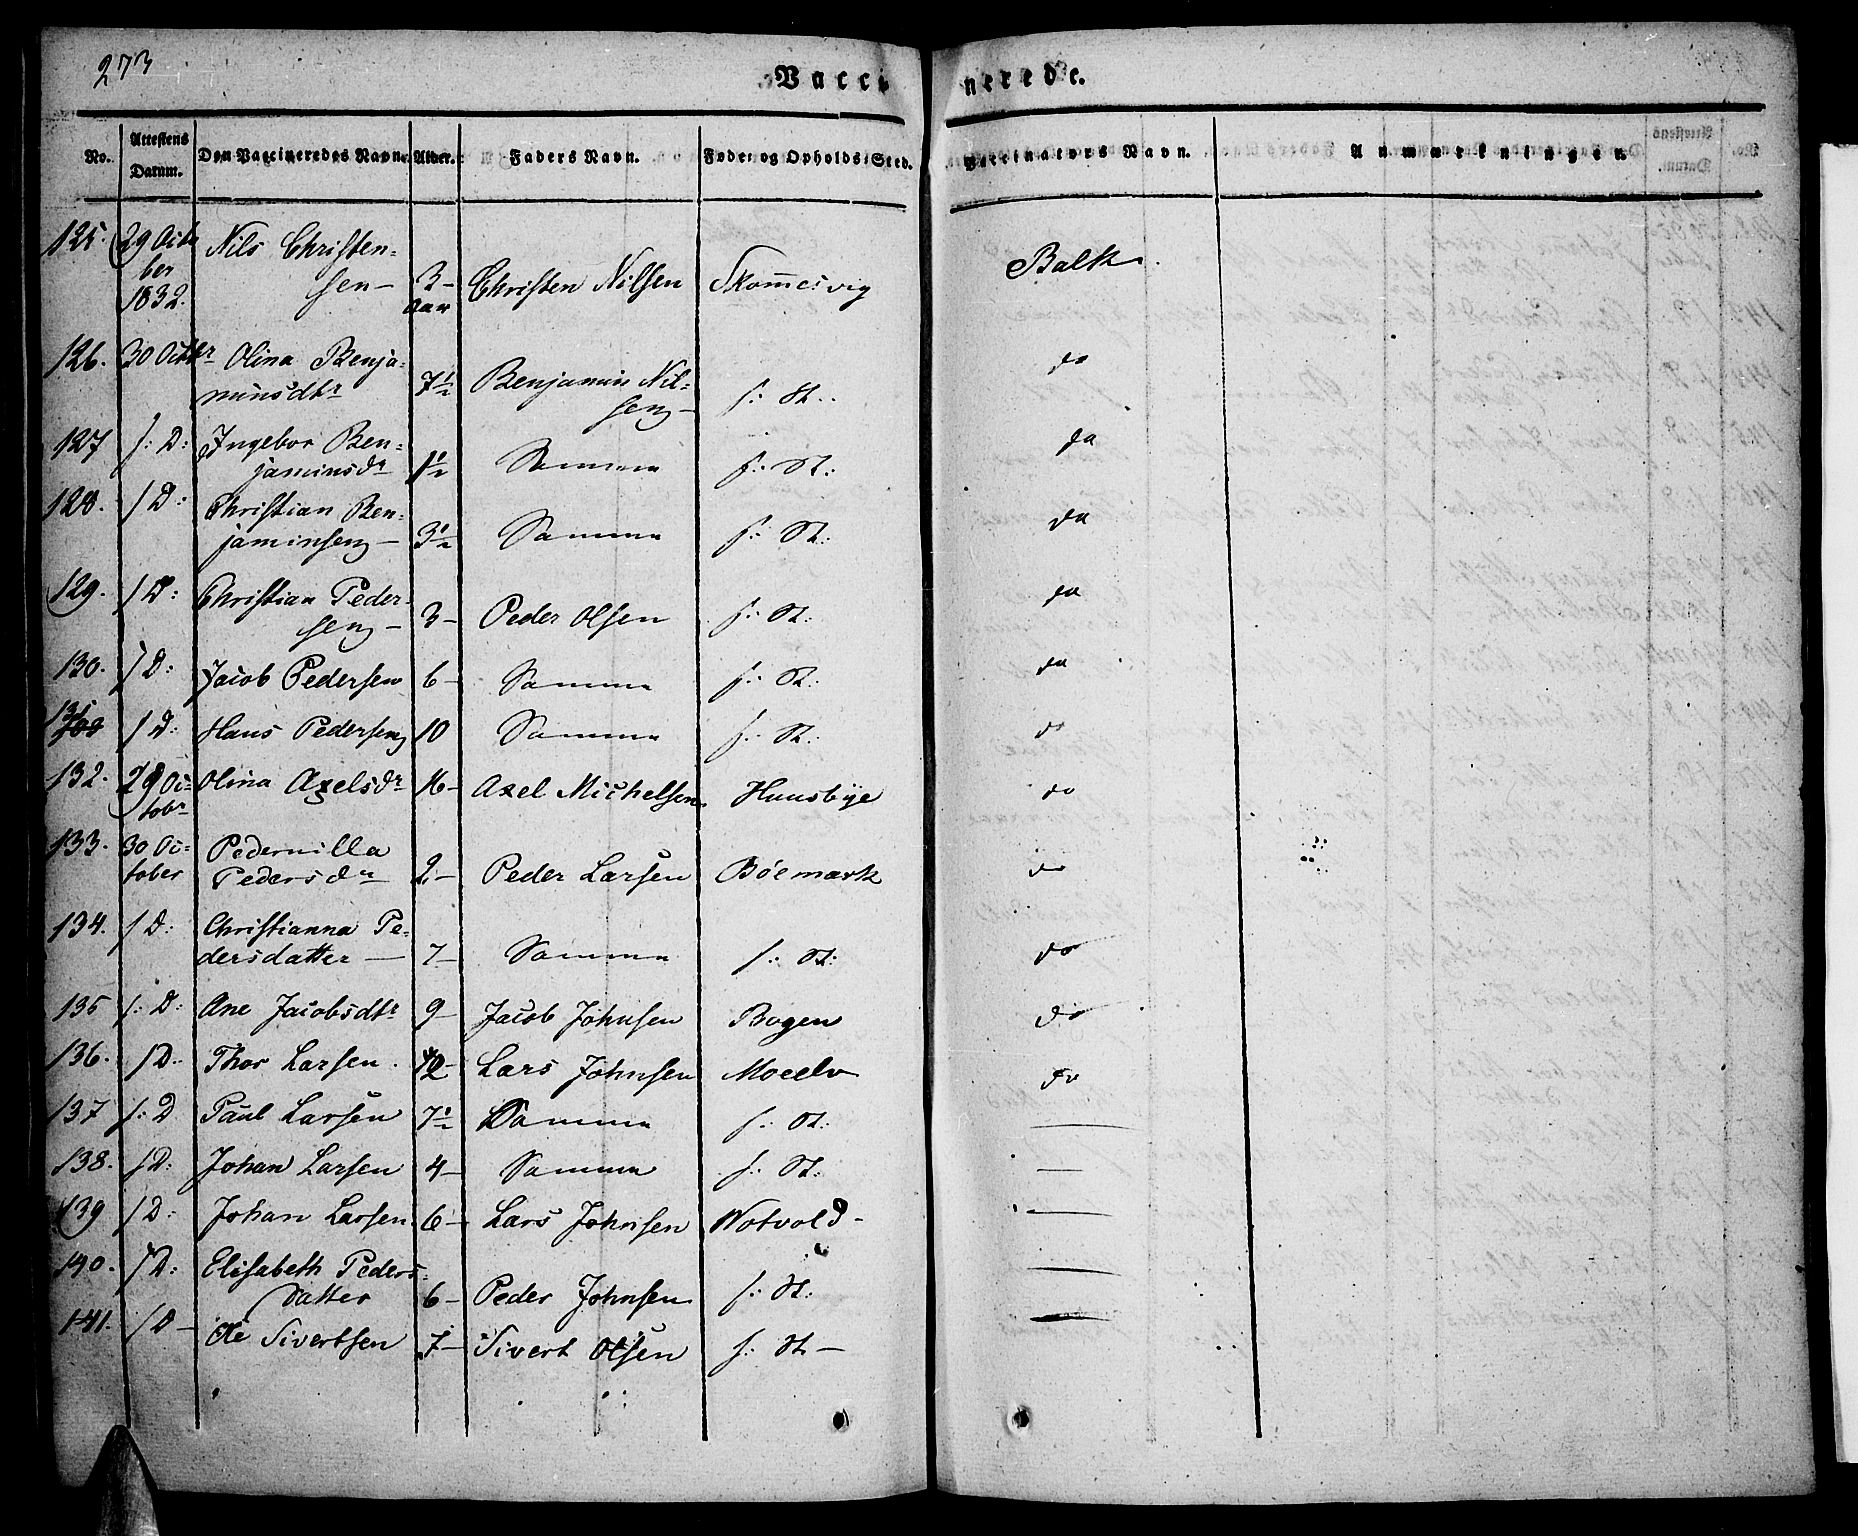 273
Vaccinerede.
No. Attestens Datum. Den Vaccineredes Navn. Alder. Faders Navn. Føde- og Opholds-Sted. Vaccinators Navn. Anmærkninger.
125. 29 Octo Nils Christen=
ber
1832. sen 3 Aar Christen Nilsen Skomesvig Balk.
126. 30 Octbr Olina Benja=
minsdtr 7½ Benjamin Nil=
sen s: St: do
127 s: D: Ingebor Ben=
jaminsdr 1½ Samme s: St: do
128. s D: Christian Ben=
jaminsen 3½ Samme s: St: do
129. s D: Christian Peder=
sen 3 Peder Olsen s: St: do
130. s D: Jacob Pedersen 6 Samme s: St: do
131 s D: Hans Pedersen 10 Samme s: St: do
132. 29 Oc=
tobr Olina Axelsdr 16 Axel Michelsen Huusbye do
133. 30 Oc=
tober Pedernilla
Pedersdr 2 Peder Larsen Bøemark do
134. s D: Christianna Pe=
dersdatter 7 Samme s: St: do
135 s: D: Ane Jacobsdtr 9 Jacob Johnsen Bogen do
136. s D: Thor Larsen 12 Lars Johnsen Moeelv do
137 s: D Paul Larsen 7½ Samme s: St: —
138. s D: Johan Larsen 4 Samme s: St: —
139 s D: Johan Larsen 6 Lars Johnsen Notvold —
140. s D: Elisabeth Peders=
datter 6 Peder Johnsen s: St: —
141. s D Ole Sivertsen 7 Sivert Olsen s: St —